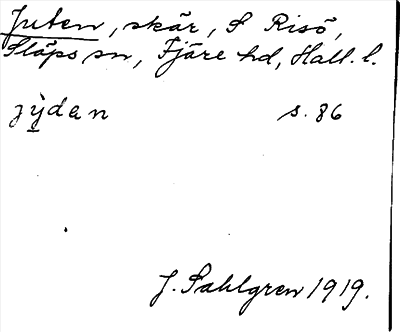 Juten, skär, S Risö,
Släps sn, Fjäre hd, Hall. l.
jỳden s. 86
J. Sahlgren 1919.